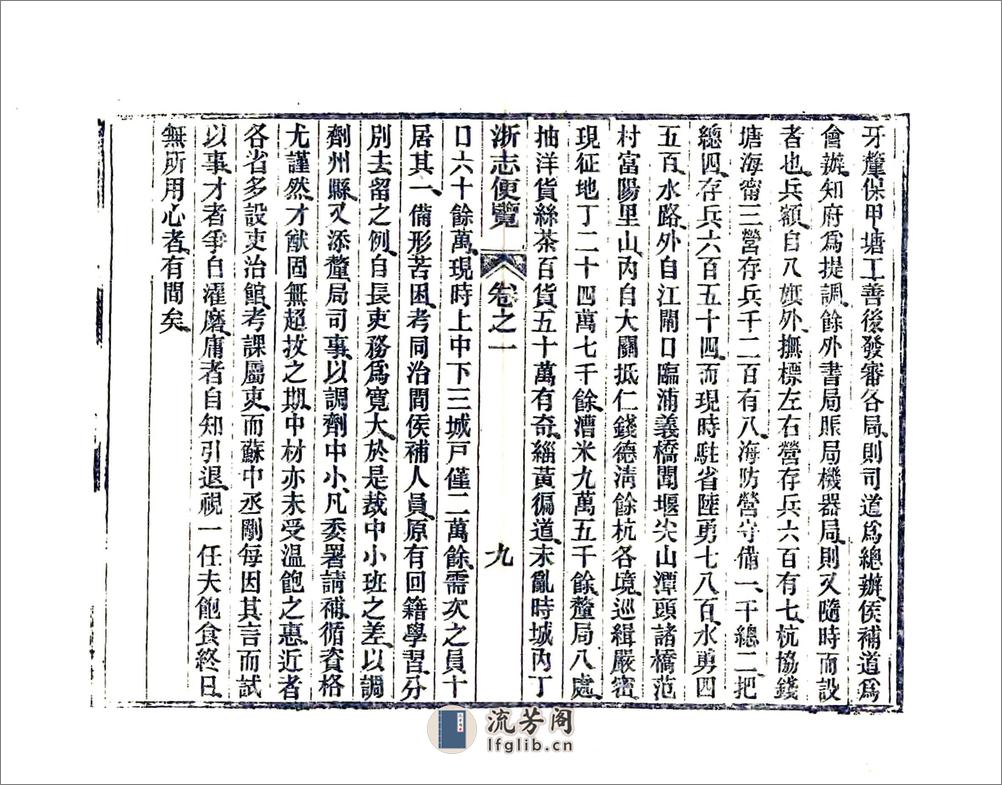 牙釐保甲塘工善後發審各局則司道爲總辦侯補道爲
會辦知府爲提調餘外書局賑局機器局則又隨時而設
者也兵額自八旗外撫標左右營存兵六百有七杭協錢
塘海甯三營存兵千二百有八海防營守備一千總二把
總四存兵六百五十四而現時駐省陸勇七八百水勇四
五百水路外自江閘口臨浦義橋聞堰尖山潭頭諸橋范
村富陽里山內自大關抵仁錢德淸餘杭各境巡緝嚴密
現征地丁二十四萬七千餘漕米九萬五千餘釐局八處
抽洋貨絲茶百貨五十萬有奇緇黃徧道未亂時城內丁
浙志便覽 卷之一 九
口六十餘萬現時上中下三城戸僅二萬餘需次之員十
居其一備形苦困考同治間侯補人員原有回籍學習分
別去留之例自長吏務爲寬大於是裁中小班之差以調
劑州縣又添釐局司事以調劑中小凡委署請補循資格
尤謹然才猷固無超拔之期中材亦未受温飽之惠近者
各省多設吏治館考課屬吏而蘇中丞剛每因其言而試
以事才者爭自濯磨庸者自知引退視一任夫飽食終日
無所用心者有間矣
流芳阁
lfglib.cn